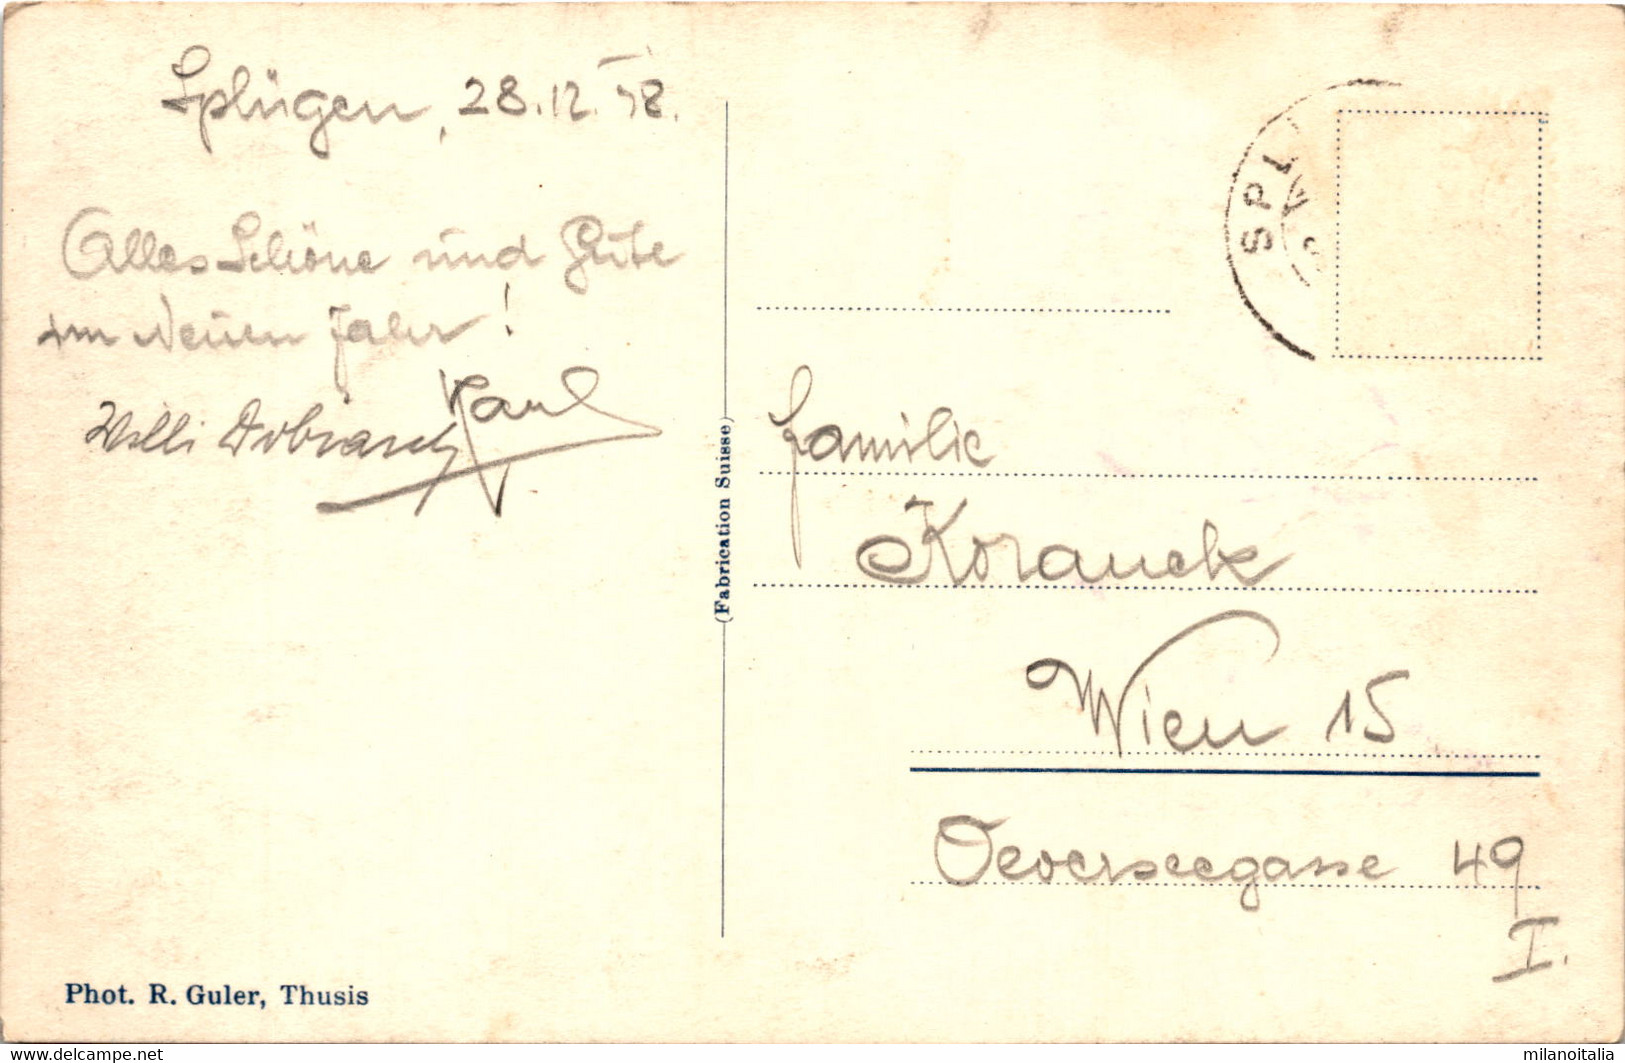 Splügen, 28.12.58.
Alles Schöne und Gute
im Neuen Jahr!
Karl
Willi
(Fabrication Suisse)
SPL
Familie
Koranek
Wien 15
Oeverseegasse 49
I.
Phot. R. Guler, Thusis
www.delcampe.net
milanoitalia